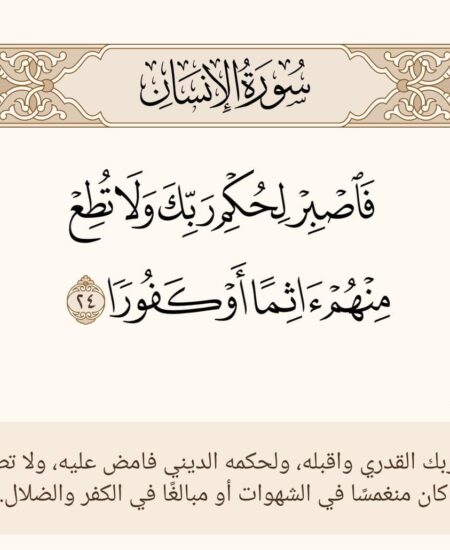 سُورَةُ الإِنسَانِ
فَٱصۡبِرۡ لِحُكۡمِ رَبِّكَ وَلَا تُطِعۡ
مِنۡهُمۡ ءَاثِمًا أَوۡ كَفُورٗا ٢٤
القدري واقبله، ولحكمه الديني فامض عليه، ولا
كان منغمسًا في الشهوات أو مبالغًا في الكفر والضلال.